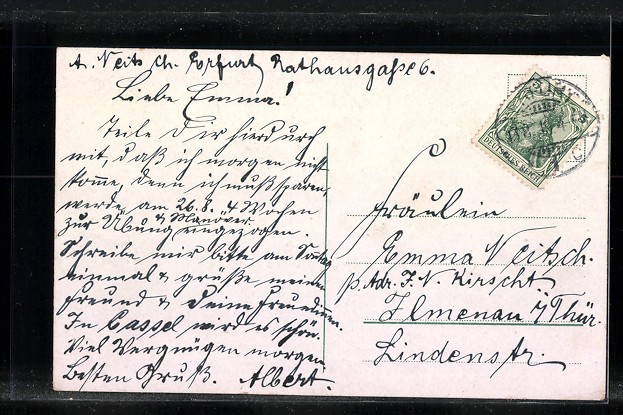 A. Veitsch. Erfurt, Rathausgasse 6.
Liebe Emma!
Teile Dir hierdurch
mit, daß ich morgen nicht
komme, denn ich muß sparen,
werde am 26.8. 4 Wochen
zur Übung & Manöver eingezogen.
Schreibe mir bitte am Sonntag
einmal & grüße meinen
Freund & Deine Freundinnen.
In Cassel wird es schön.
Viel Vergnügen morgen
Besten Gruß. Albert.
DEUTSCHES REICH
Fräulein
Emma Veitsch.
p. Adr. J. N. Kirscht
Ilmenau i/Thür.
Lindenstr.